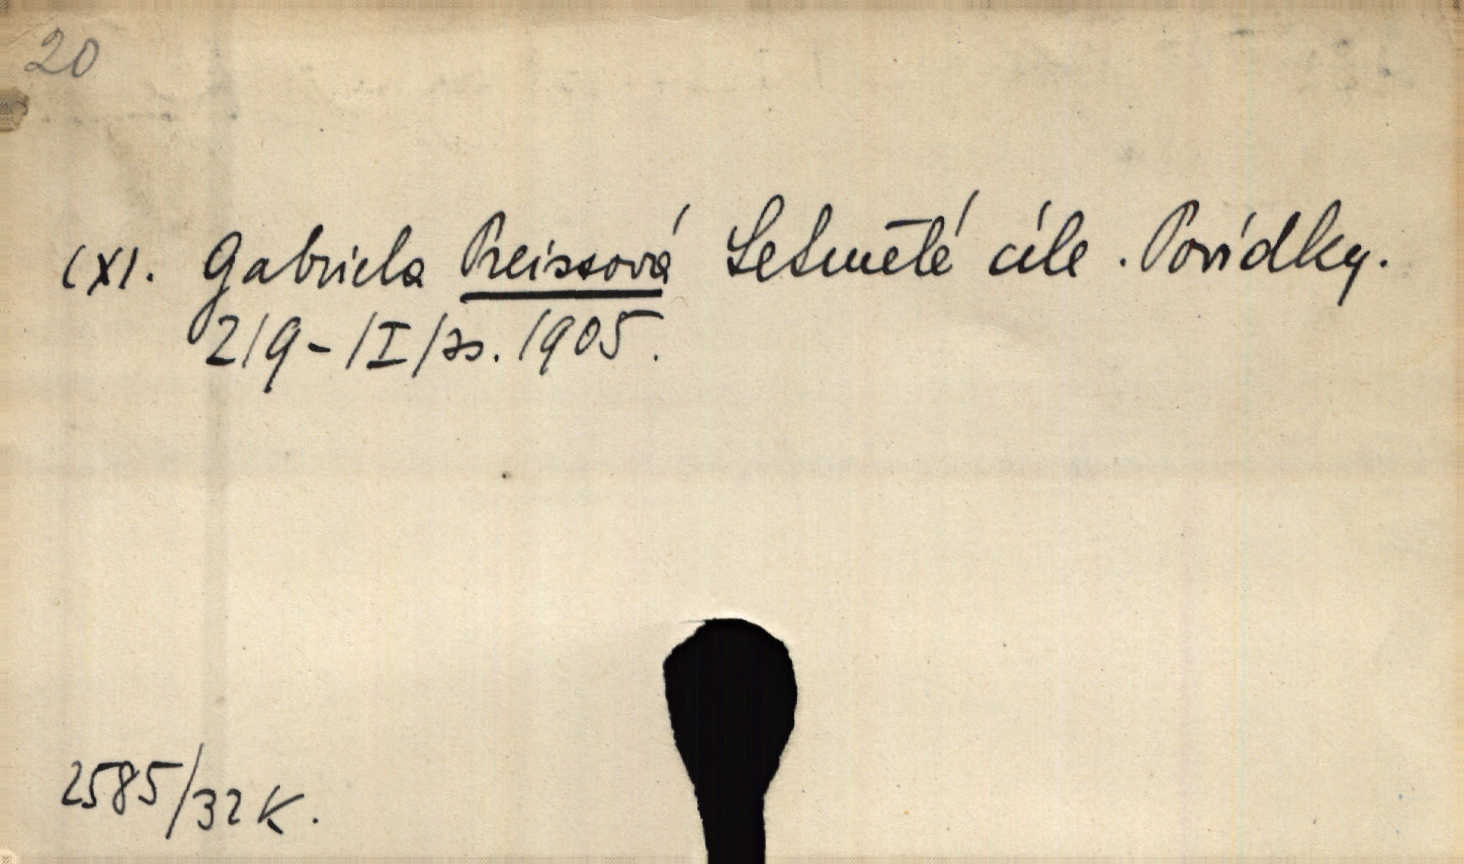 20
(X). Gabriela Preissová Setmělé cíle. Povídky.
219-/I/ss. 1905.
2585/32 K.